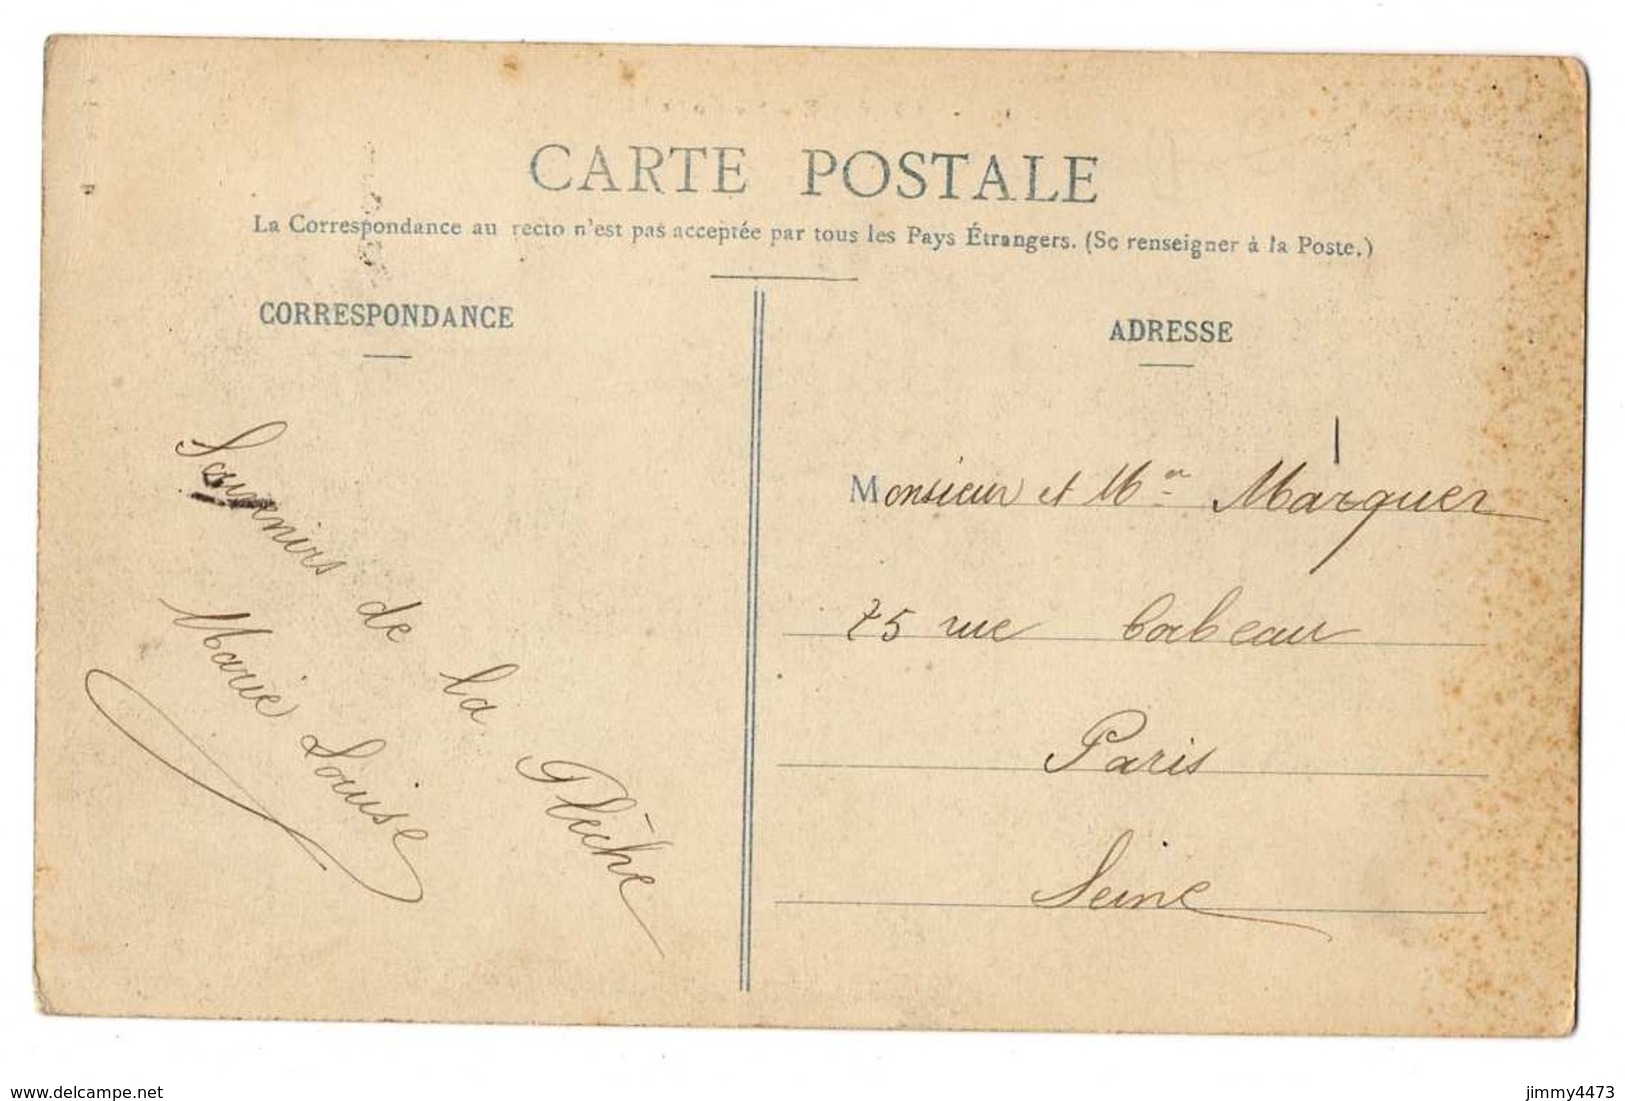 CARTE POSTALE
La Correspondance au recto n'est pas acceptée par tous les Pays Étrangers. (Se renseigner à la Poste.)
CORRESPONDANCE
Souvenirs de la Flèche
Marie Louise
ADRESSE
Monsieur et Mme Marquer
75 rue
Paris
Seine
www.delcampe.net
jimmy4473